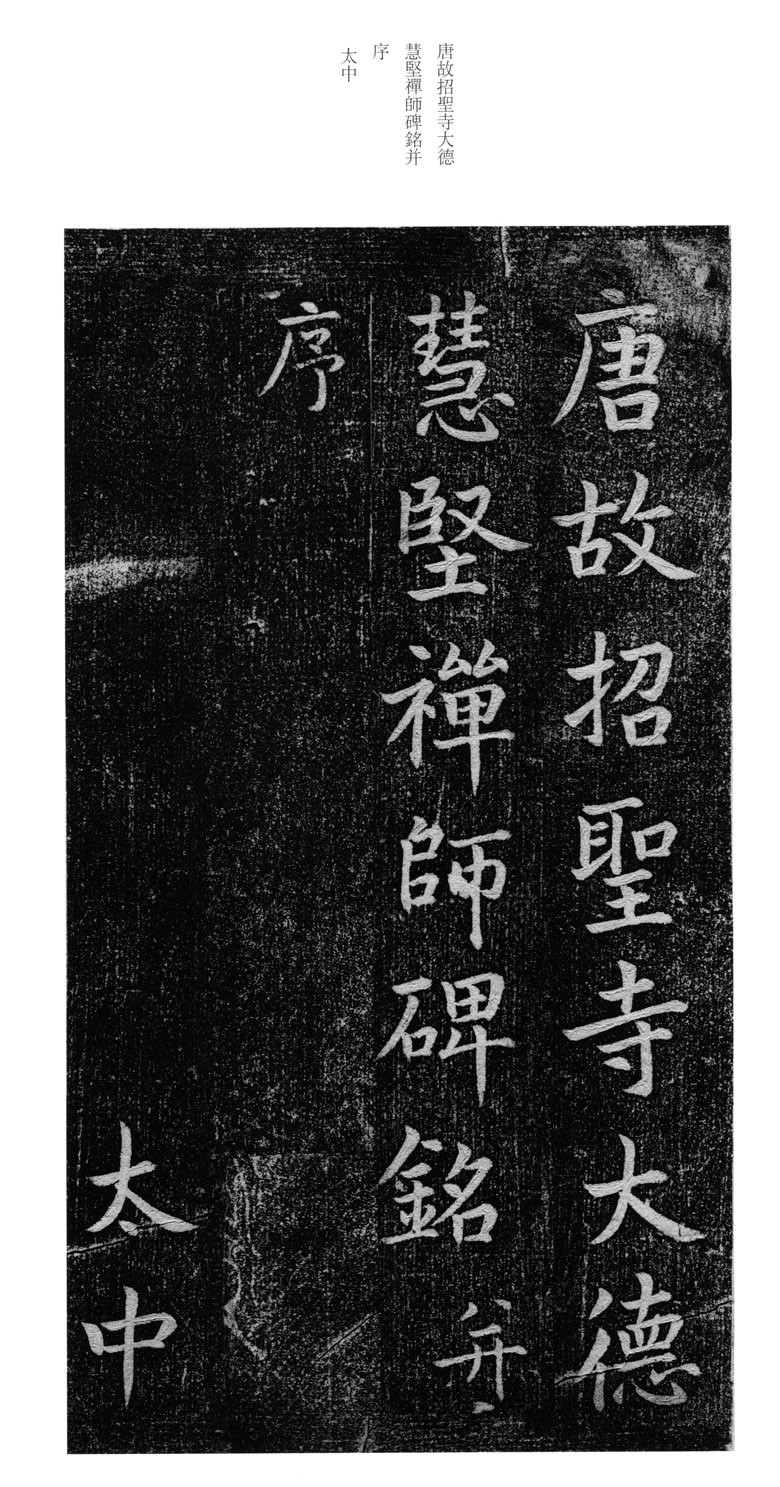 唐故招聖寺大德
慧堅禪師碑銘并
序
太中
唐故招聖寺大德
慧堅禪師碑銘并
序
太中